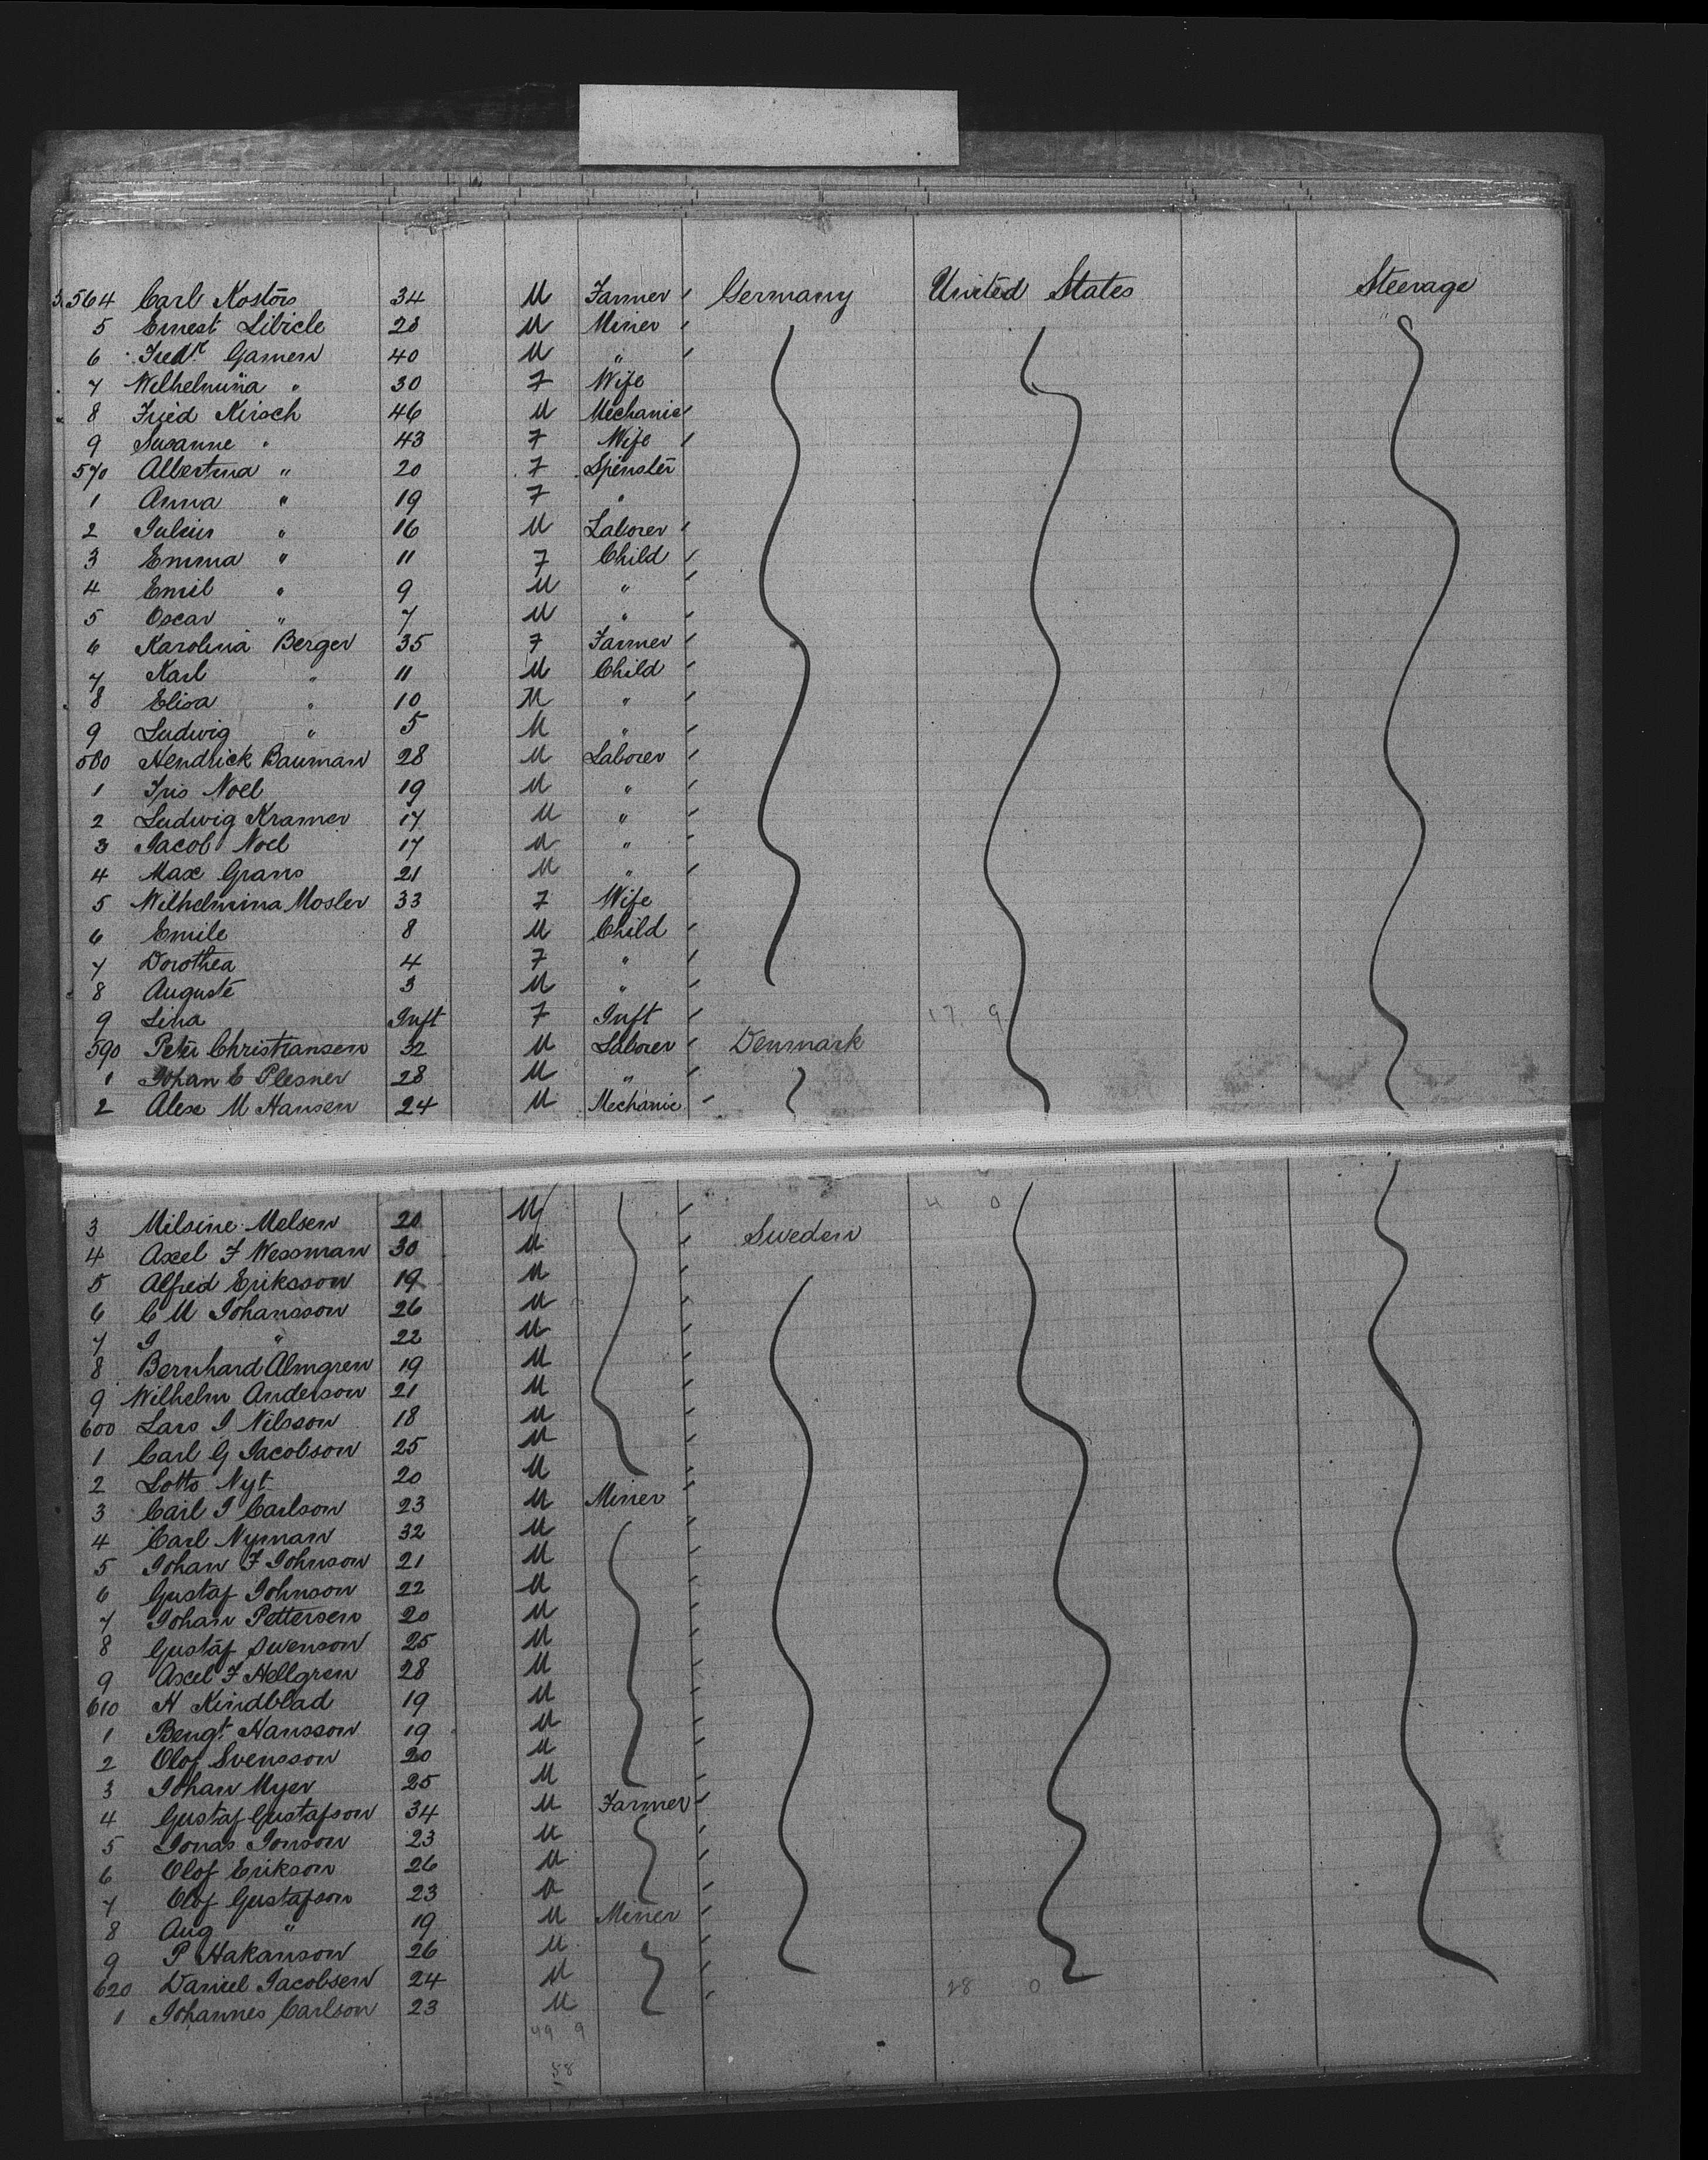 564 Carl Kostors 34 M Farmer Germany United States Steerage
5 Ernest Libicle 28 M Miner
6 Fredk Gamen 40 M "
7 Wilhelmina " 30 F Wife
8 Fried Kirsch 46 M Mechanic
9 Susanne " 43 F Wife
570 Albertina " 20 F Spinster
1 Anna " 19 F "
2 Julius " 16 M Laborer
3 Emma " 11 F Child
4 Emil " 9 M "
5 Oscar " 7 M "
6 Karolina Berger 35 F Farmer
7 Karl " 11 M Child
8 Elisa " 10 M "
9 Ludwig " 5 M "
580 Hendrick Bauman 28 M Laborer
1 Fris Noel 19 M "
2 Ludwig Kramer 17 M "
3 Jacob Noel 17 M "
4 Max Grans 21 M "
5 Wilhelmina Mosler 33 F Wife
6 Emile 8 M Child
7 Dorothea 4 F "
8 Auguste 3 M "
9 Lina Inft F Inft 17 9
590 Peter Christiansen 32 M Laborer Denmark
1 Johan E Plesner 28 M "
2 Alex M Hansen 24 M Mechanic
3 Milsine Melsen 20 M 4 0
4 Axel F Wessman 30 M Sweden
5 Alfred Eriksson 19 M
6 C M Johansson 26 M
7 J " 22 M
8 Bernhard Almgren 19 M
9 Wilhelm Anderson 21 M
600 Lars J Nilsson 18 M
1 Carl G Jacobson 25 M
2 Lotto Nyt 20 M
3 Carl J Carlson 23 M Miner
4 Carl Nyman 32 M
5 Johan F Johnson 21 M
6 Gustaf Johnson 22 M
7 Johan Pettersen 20 M
8 Gustaf Swenson 25 M
9 Axel F Hellgren 28 M
610 N Kindblad 19 M
1 Bengt Hansson 19 M
2 Olof Svensson 20 M
3 Johan Myer 25 M
4 Gustaf Gustafson 34 M Farmer
5 Jonas Jonson 23 M
6 Olof Erikson 26 M
7 Olof Gustafson 23 M
8 Aug " 19 M Miner
9 P Hakanson 26 M
620 Daniel Jacobsen 24 M 28 0
1 Johannes Carlson 23 M
49 9
58